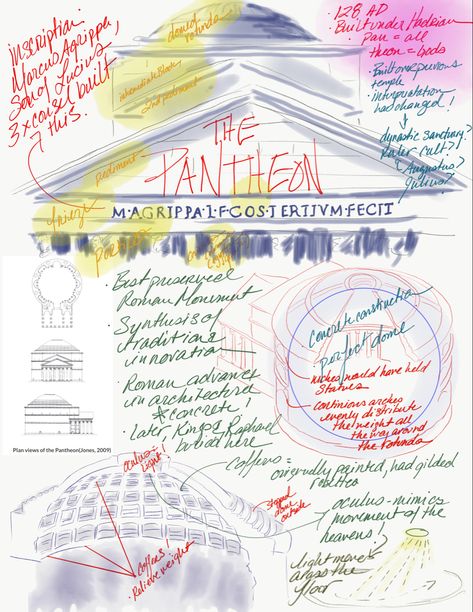 inscription
Marcus Agrippa,
Son of Lucius
3 x consul built
this.
domed
rotunda
128 AD
• Built under Hadrian
Pan = all
theon = Gods
• Built over previous
temple
• interpretation
had changed!
dynastic sanctuary?
Ruler Cult?
(Augustus?
Julius?)
intermediate Block
2nd pediment
THE
PANTHEON
pediment
frieze
M·AGRIPPA·L·F·COS·TERTIVM·FECIT
• Best preserved
Roman Monument
• Synthesis of
traditions
innovation
• Roman advances
in architecture
* concrete!
• Later Kings & Raphael
buried here
concrete construction
perfect dome
niches would have held
Statues
continuous arches
evenly distribute
the weight all
the way around
the Rotunda
Plan views of the Pantheon(Jones, 2009)
oculus!
• light
coffers = originally painted, had gilded
rosettes
stepped
dome
outside
• oculus - mimics
movement of the
heavens?
light moves
across the
floor
coffers!
• Relieve weight